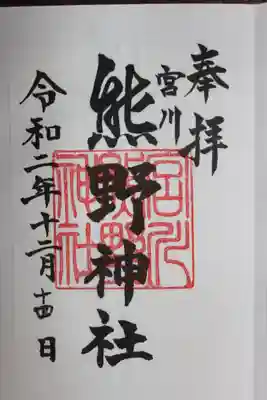 奉拝
宮川
熊野神社
令和二年十二月十四日
宮川
熊野
神社